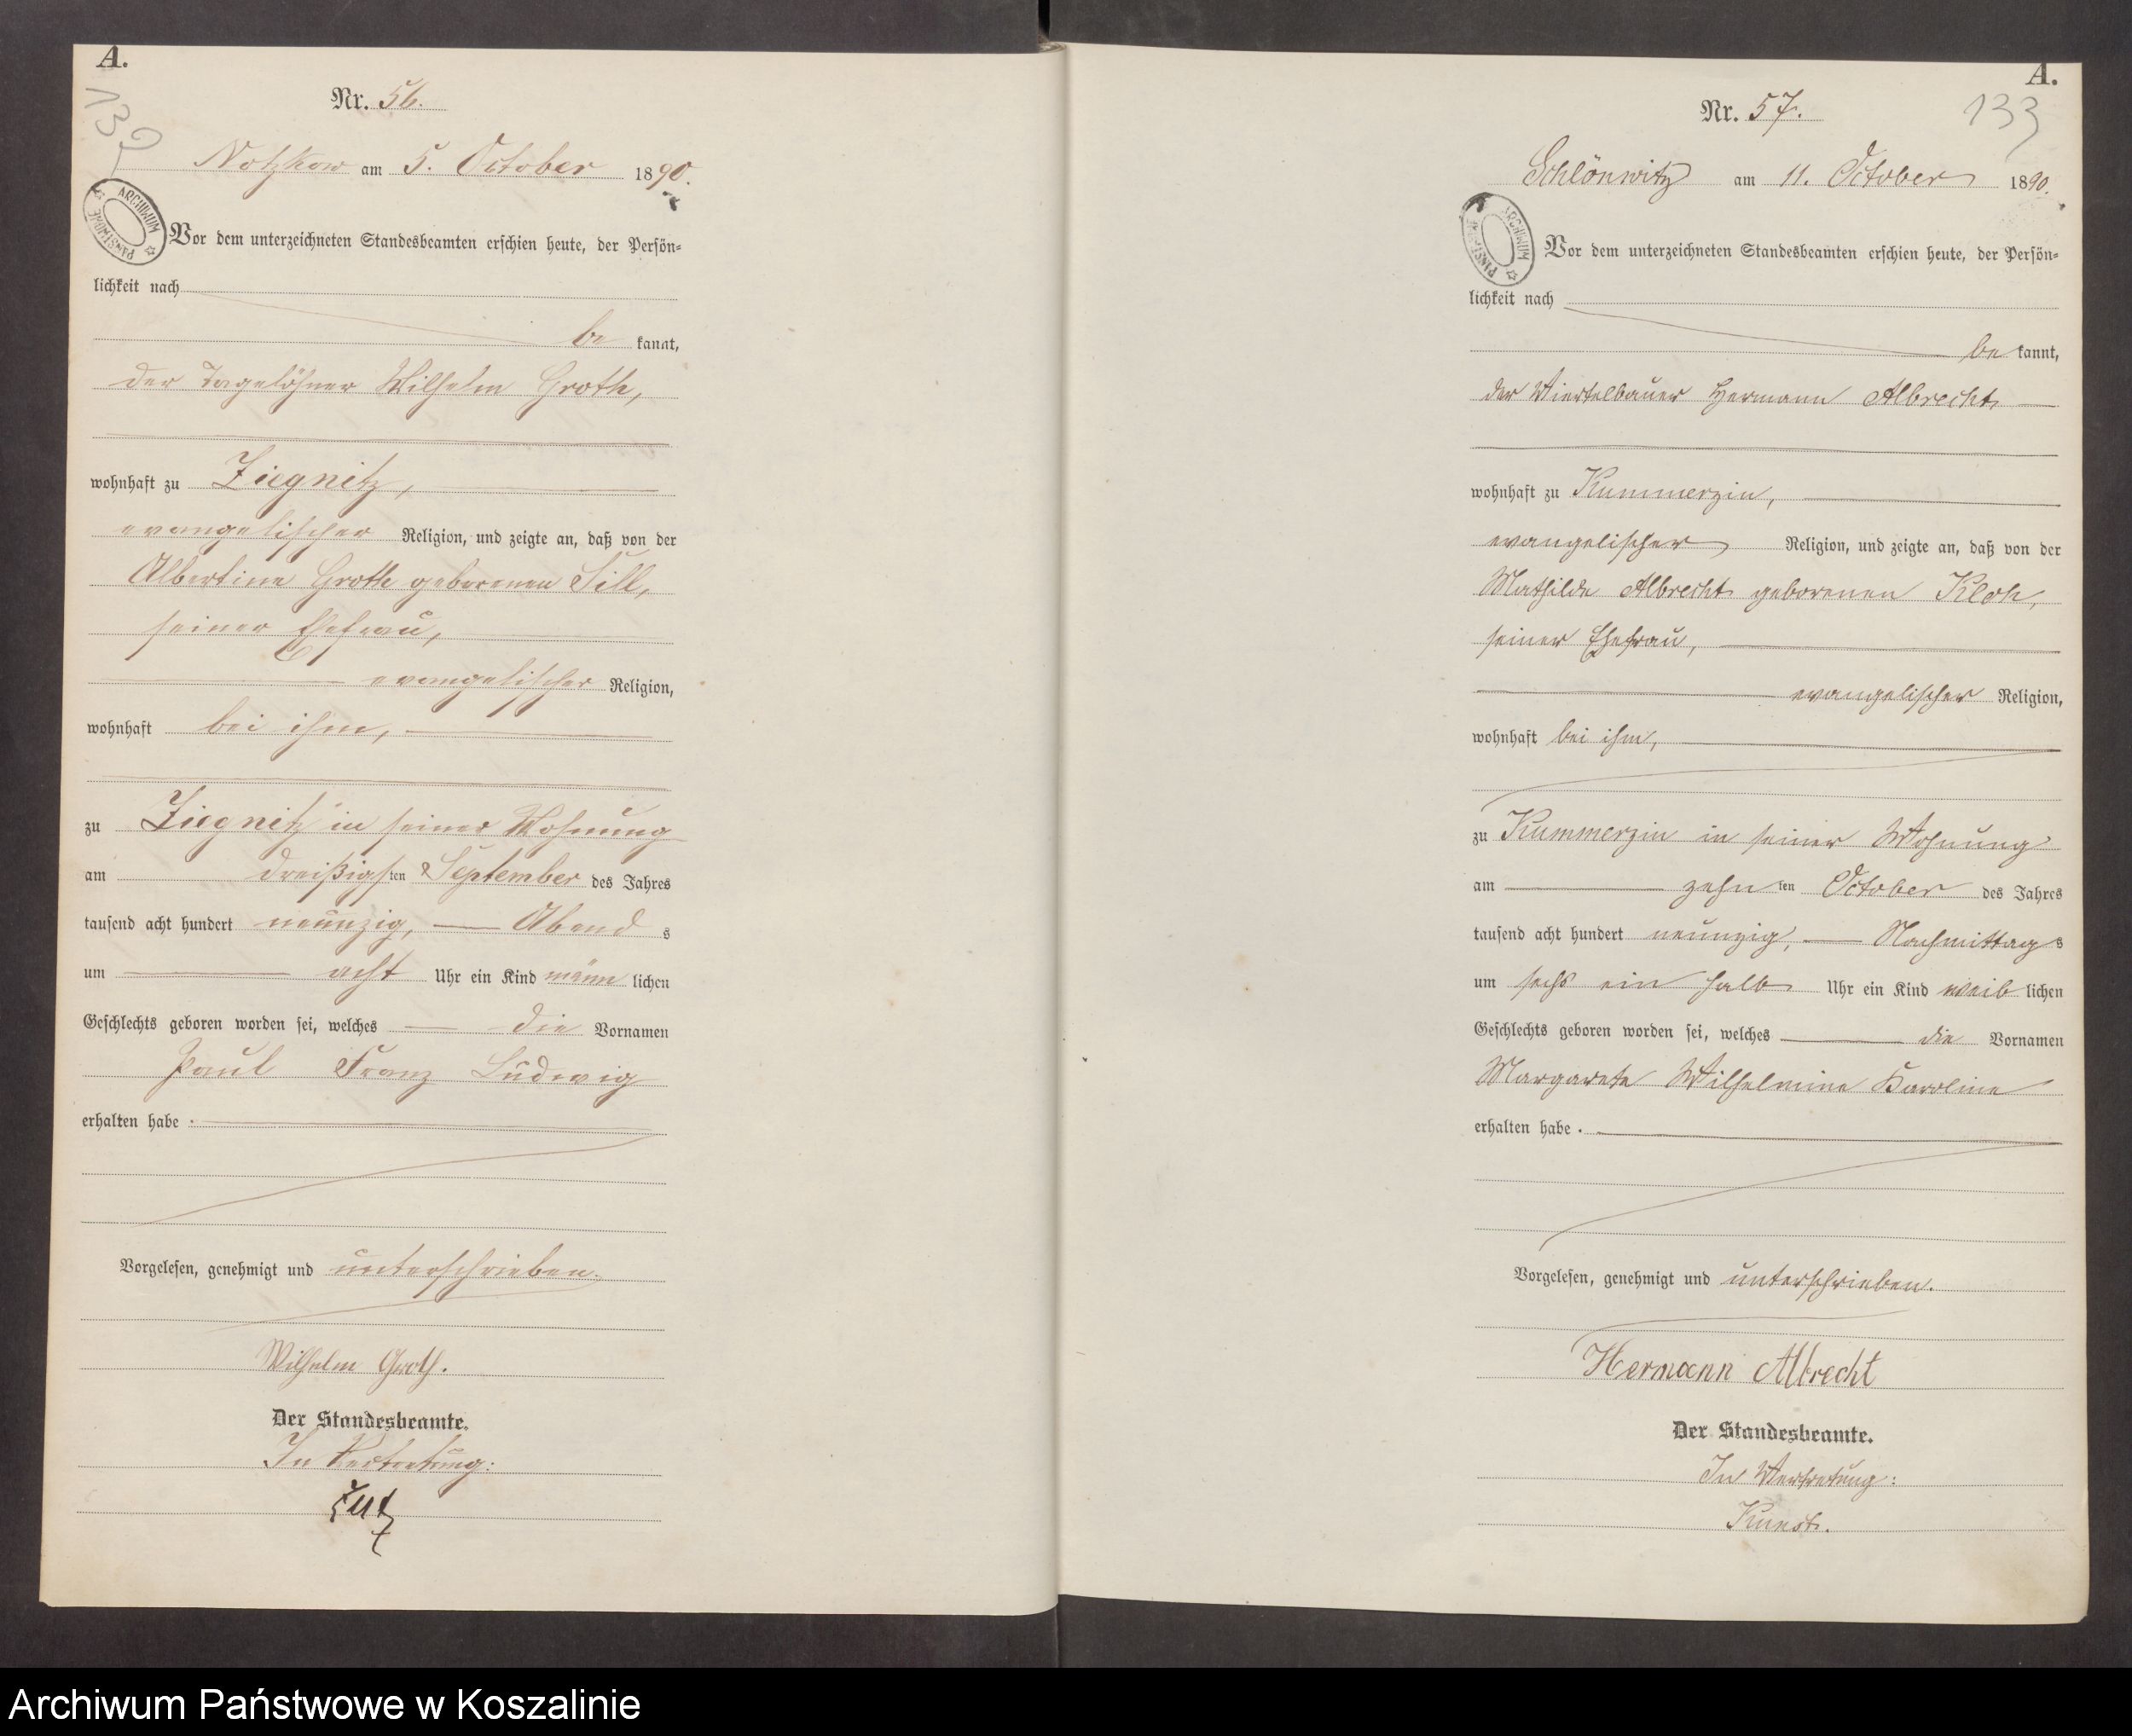 A.
132
Nr. 56.
Notzkow am 5. October 1890.
ARCHIWUM PAŃSTWOWE
Vor dem unterzeichneten Standesbeamten erschien heute, der Persön=
lichkeit nach
be kannt,
der Tagelöhner Wilhelm Groth,
wohnhaft zu Ziegnitz,
evangelischer Religion, und zeigte an, daß von der
Albertine Groth geborenen Sill,
seiner Ehefrau,
evangelischer Religion,
wohnhaft bei ihm,
zu Ziegnitz in seiner Wohnung
am dreißigsten September des Jahres
tausend acht hundert neunzig, Abend s
um acht Uhr ein Kind männ lichen
Geschlechts geboren worden sei, welches die Vornamen
Paul Franz Ludwig
erhalten habe.
Vorgelesen, genehmigt und unterschrieben.
Wilhelm Groth.
Der Standesbeamte.
In Vertretung:
A.
133
Nr. 57.
Schlönwitz am 11. October 1890.
ARCHIWUM PAŃSTWOWE
Vor dem unterzeichneten Standesbeamten erschien heute, der Persön=
lichkeit nach
be kannt,
der Viertelbauer Hermann Albrecht
wohnhaft zu Kummerzin,
evangelischer Religion, und zeigte an, daß von der
Mathilde Albrecht geborenen
seiner Ehefrau,
evangelischer Religion,
wohnhaft bei ihm,
zu Kummerzin in seiner Wohnung
am zehn ten October des Jahres
tausend acht hundert neunzig, Nachmittag s
um sechs ein halb Uhr ein Kind weib lichen
Geschlechts geboren worden sei, welches die Vornamen
Margarete Wilhelmine Karoline
erhalten habe.
Vorgelesen, genehmigt und unterschrieben.
Hermann Albrecht
Der Standesbeamte.
In Vertretung:
Kunst.
Archiwum Państwowe w Koszalinie